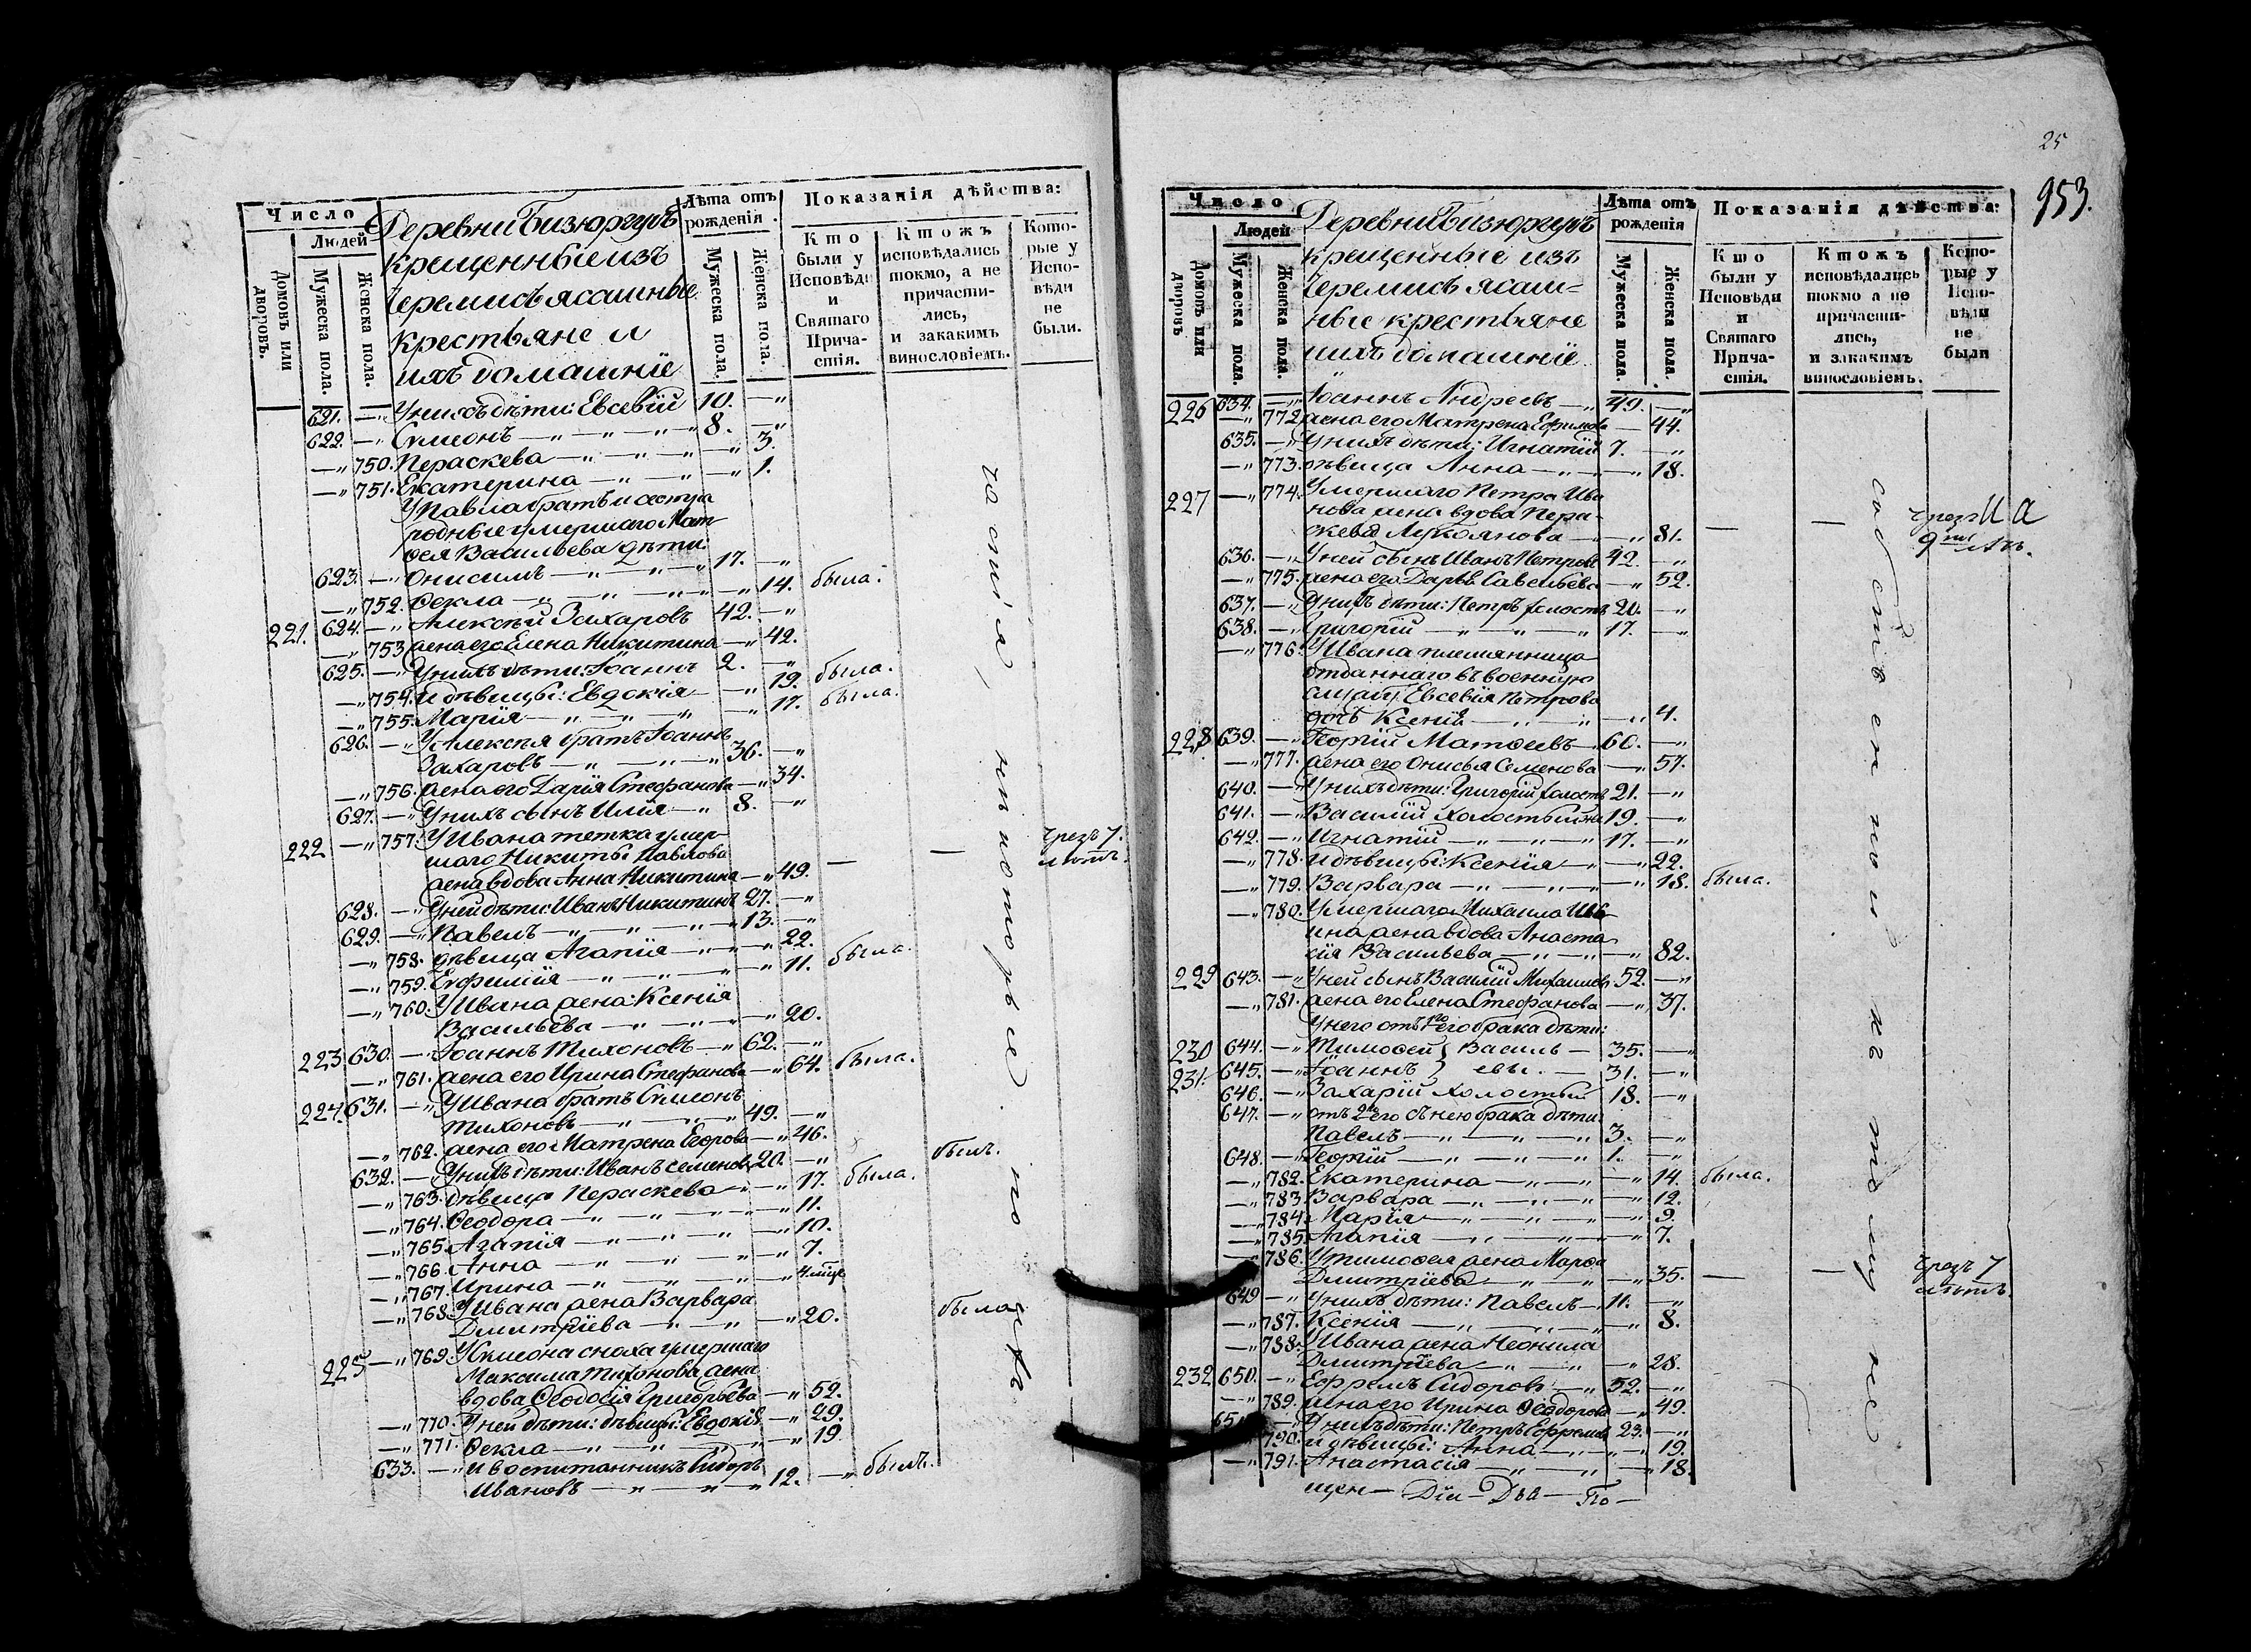 Число
Людей
Домовъ или дворовъ.
Мужеска пола.
Женска пола.
Деревни Бизюргупъ
крещенные изъ
Черемисъ ясашные
крестьяне и
ихъ домашніе
Лѣта отъ рожденія.
Мужеска пола.
Женска пола.
Показанія дѣйства:
Кто были у Исповѣди и Святаго Причастія.
Ктожъ исповѣдались токмо, а не причастились, и закакимъ винословіемъ.
Которые у Исповѣди не были.
621. —„ У нихъ дѣти: Евсевій 10. —„
622. —„ Симеонъ —„ —„ —„ 8. —„
—„ 750. Параскева —„ —„ —„ 3.
—„ 751. Екатерина —„ —„ —„ 1.
У Павла братъ и сестра
родные умершаго Мат-
ѳея Васильева дѣти:
623. —„ Онисимъ —„ —„ 17. —„
—„ 752. Ѳекла —„ —„ —„ 14. была.
221. 624. —„ Алексѣй Захаровъ 42. —„
—„ 753 жена его Елена Никитина —„ 42.
625. —„ У нихъ дѣти: Іоаннъ 2. —„
—„ 754. И дѣвицы: Евдокія —„ 19. была.
—„ 755. Марія —„ —„ —„ 17. была.
626. —„ У Алексѣя братъ Іоаннъ
Захаровъ —„ —„ 36. —„
—„ 756. жена его Дарія Стефанова —„ 34.
627. —„ У нихъ сынъ Илія —„ 8. —„
222 —„ 757. У Ивана тетка умер-
шаго Никиты Павлова
жена вдова Анна Никитина —„ 49. — — чрезъ 7. лѣтъ.
628. —„ У ней дѣти: Иванъ Никитинъ 27. —„
629. —„ Павелъ —„ —„ —„ 13. —„
—„ 758. дѣвица Агапія —„ —„ 22.
—„ 759. Евфимія —„ —„ —„ 11. была.
—„ 760. У Ивана жена: Ксенія
Васильева —„ —„ —„ 20.
223. 630. —„ Іоаннъ Тихоновъ —„ 62. —„
—„ 761. жена его Ирина Стефанова —„ 64. была.
224. 631. —„ У Ивана братъ Симеонъ
Тихоновъ —„ —„ 49. —„
—„ 762. жена его Матрена Егорова —„ 46.
632. —„ У нихъ дѣти: Иванъ Семеновъ 20. —„ былъ.
—„ 763. дѣвица Параскева —„ 17. была.
—„ 764. Ѳеодора —„ —„ —„ 11.
—„ 765. Агапія —„ —„ —„ 10.
—„ 766. Анна —„ —„ —„ 7.
—„ 767. Ирина —„ —„ —„ 4. мѣсц.
—„ 768. У Ивана жена Варвара
Дмитріева —„ —„ —„ 20. была.
225 —„ 769. У Симеона сноха умершаго
Максима Тихонова, жена
вдова Ѳеодосія Григорьева —„ 52.
—„ 770. У ней дѣти: дѣвицы: Евдокія —„ 29.
—„ 771. Ѳекла —„ —„ —„ 19.
633. —„ И воспитанникъ Сидоръ
Ивановъ —„ —„ 12. —„ былъ.
25
953.
Число
Людей
Домовъ или дворовъ
Мужеска пола.
Женска пола.
Деревни Бизюргупъ
крещенные изъ
Черемисъ ясаш=
ные крестьяне
ихъ домашніе
Лѣта отъ рожденія
Мужеска пола.
Женска пола.
Показанія дѣйства:
Кто были у Исповѣди и Святаго Причастія.
Ктожъ исповѣдались токмо а не причастились, и закакимъ винословіемъ.
Которые у Исповѣди не были
226 634. —„ Іоаннъ Андреевъ —„ 49. —„
—„ 772. жена его Матрена Ефимова — 44.
635. —„ У нихъ дѣти: Игнатій 7. —„
—„ 773. дѣвица Анна —„ —„ 18.
227 —„ 774. Умершаго Петра Ива
нова жена вдова Пера-
скева Лукоянова —„ 81. — —
636. —„ У ней сынъ Иванъ Петровъ 42. —„
—„ 775. жена его Дарья Савельева —„ 52.
637. —„ У нихъ дѣти: Петръ холостъ 20. —„
638. —„ Григорій —„ —„ —„ 17. —„
—„ 776. У Ивана племянница
отданнаго въ военную
службу Евсевія Петрова
дочь Ксенія —„ —„ 4.
228 639. —„ Георгій Матѳеевъ —„ 60. —„
—„ 777. жена его Онисья Семенова —„ 57.
640. —„ У нихъ дѣти: Григорій холостъ 21. —„
641. —„ Василій холостый 19. —„
642. —„ Игнатій —„ —„ 17. —„
—„ 778. И дѣвицы: Ксенія —„ —„ 22.
—„ 779. Варвара —„ —„ —„ 18. была.
—„ 780. Умершаго Михаила
ина жена вдова Анаста
сія Васильева —„ —„ 82.
229 643. —„ У ней сынъ Василій Михаиловъ 52. —„
—„ 781. жена его Елена Стефанова —„ 37.
У него отъ 1го его брака дѣти:
230 644. —„ Тимоѳей } Василь — 35. —„
231. 645. —„ Іоаннъ } евы. — 31. —„
646. —„ Захарій холостый 18. —„
647. —„ отъ 2го его съ нею брака дѣти:
Павелъ —„ —„ —„ 3. —„
648. —„ Георгій —„ —„ —„ 1. —„
—„ 782. Екатерина —„ —„ —„ 14. была.
—„ 783. Варвара —„ —„ —„ 12.
—„ 784. Марія —„ —„ —„ 9.
—„ 785. Агапія —„ —„ —„ 7.
—„ 786. У Тимоѳея жена Марѳа
Дмитріева —„ —„ —„ 35. — — чрезъ 7 лѣтъ.
649 —„ У нихъ дѣти: Павелъ —„ 11. —„
—„ 787. Ксенія —„ —„ —„ 8.
—„ 788. У Ивана жена Неонила
Дмитріева —„ —„ —„ 28.
232 650. —„ Ефремъ Сидоровъ —„ 52. —„
—„ 789. жена его Ирина Ѳеодорова —„ 49.
651 —„ У нихъ дѣти: Петръ Ефремовъ 23. —„
790. и дѣвицы: Анна —„ —„ 19.
—„ 791. Анастасія —„ —„ —„ 18.